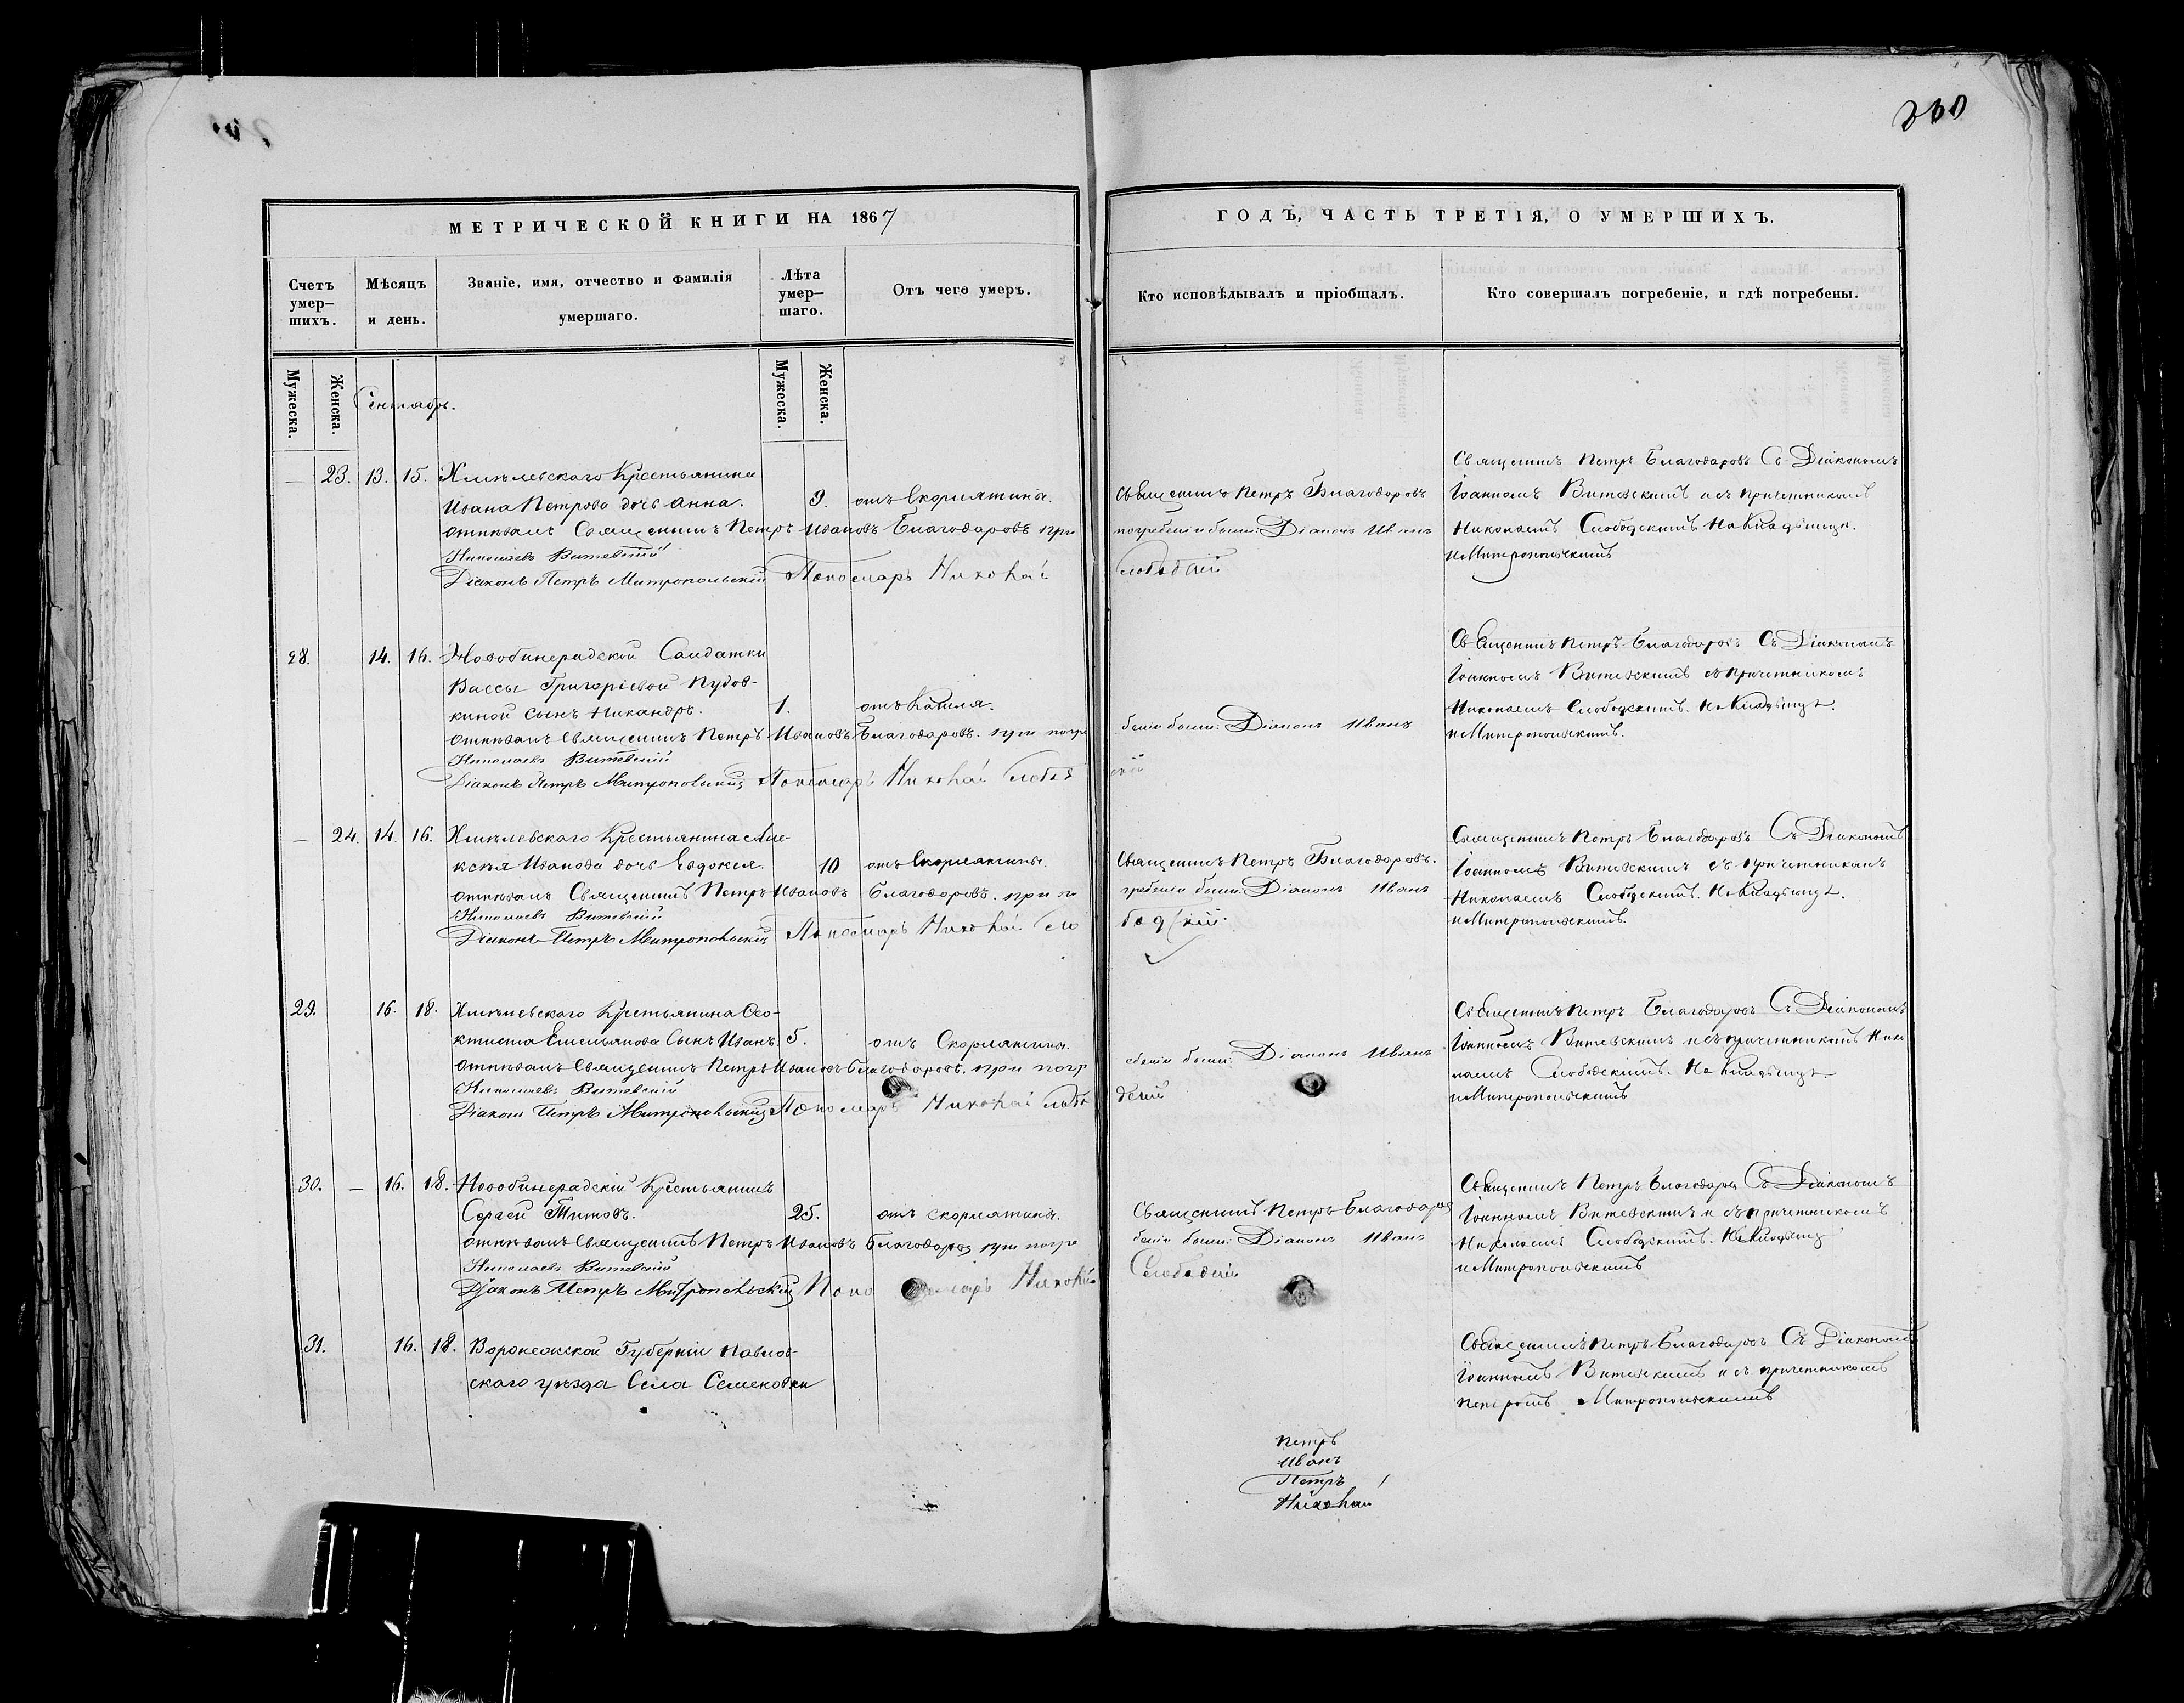 260
МЕТРИЧЕСКОЙ КНИГИ НА 1867
ГОДЪ, ЧАСТЬ ТРЕТІЯ, О УМЕРШИХЪ.
Счетъ умер–шихъ.
Мѣсяцъ и день.
Званіе, имя, отчество и фамилія умершаго.
Лѣта умер–шаго.
Отъ чего умеръ.
Кто исповѣдывалъ и пріобщалъ.
Кто совершалъ погребеніе, и гдѣ погребены.
Мужеска.
Женска.
Мужеска.
Женска.
Сентябрь.
— 23. 13. 15. Хмѣлевскаго Крестьянина
Ивана Петрова дочь Анна. 9. отъ Скорлятины.
отпѣвалъ Священникъ Петръ Ивановъ Благодаровъ при
Николаевъ Витевскій
Діаконъ Петръ Митропольскій Пономарь Николай
Священникъ Петръ Благодаровъ
погребеніи были: Діаконъ Иванъ
Слободскій
Священникъ Петръ Благодаровъ Съ Діакономъ
Іоанномъ Витевскимъ и съ причетникомъ
Николаемъ Слободскимъ На Кладбищѣ.
и Митропольскимъ
28. 14. 16. Новобинерадской Салдатки
Вассы Григоріевой Пудов-
киной сынъ Никандръ. 1. отъ Кашля.
отпѣвалъ Священникъ Петръ Ивановъ Благодаровъ. при погре
Николаевъ Витевскій
Діаконъ Петръ Митропольскій Пономарь Николай Слобод
беніи были: Діаконъ Иванъ
скій
Священникъ Петръ Благодаровъ Съ Діакономъ
Іоанномъ Витевскимъ съ причетникомъ
Николаемъ Слободскимъ. На Кладбищѣ.
и Митропольскимъ.
— 24. 14. 16. Хмѣлевскаго Крестьянина Але-
ксѣя Иванова дочь Евдокея. 10 отъ Скорлятины.
отпѣвалъ Священникъ Петръ Ивановъ Благодаровъ. при по
Николаевъ Витевскій
Діаконъ Петръ Митропольскій Пономарь Николай Сло
Священникъ Петръ Благодаровъ.
гребеніи были: Діаконъ Иванъ
бодскій.
Священникъ Петръ Благодаровъ Съ Діакономъ
Іоанномъ Витевскимъ съ причетникомъ
Николаемъ Слободскимъ. На Кладбищѣ.
и Митропольскимъ.
29. 16. 18. Хмѣлевскаго Крестьянина Ѳео-
ктиста Емельянова Сынъ Иванъ. 5. отъ Скорлятины.
отпѣвалъ Священникъ Петръ Ивановъ Благодаровъ. при погр
Николаевъ Витевскій
Діаконъ Петръ Митропольскій Пономарь Николай Слобо
ебеніи были: Діаконъ Иванъ
дскій
Священникъ Петръ Благодаровъ Съ Діакономъ
Іоанномъ Витевскимъ и съ причетникомъ Нико
лаемъ Слободскимъ. На Кладбищѣ.
и Митропольскимъ
30. — 16. 18. Новобинерадскій Крестьянинъ
Сергей Титовъ. 25. отъ скорлятины.
отпѣвалъ Священникъ Петръ Ивановъ Благодаровъ при погре
Николаевъ Витевскій
Діаконъ Петръ Митропольскій Пономарь Николай
Священникъ Петръ Благодаровъ
беніи были: Діаконъ Иванъ
Слободскій
Священникъ Петръ Благодаровъ Съ Діакономъ
Іоанномъ Витевскимъ и съ причетникомъ
Николаемъ Слободскимъ. На Кладбищѣ
и Митропольскимъ
31. 16. 18. Воронежской Губерніи Павлов-
скаго уѣзда Села Семеновки
Священникъ Петръ Благодаровъ Съ Діакономъ
Іоанномъ Витевскимъ и съ причетникомъ
Петромъ Митропольскимъ
Петръ
Иванъ
Петръ
Николай